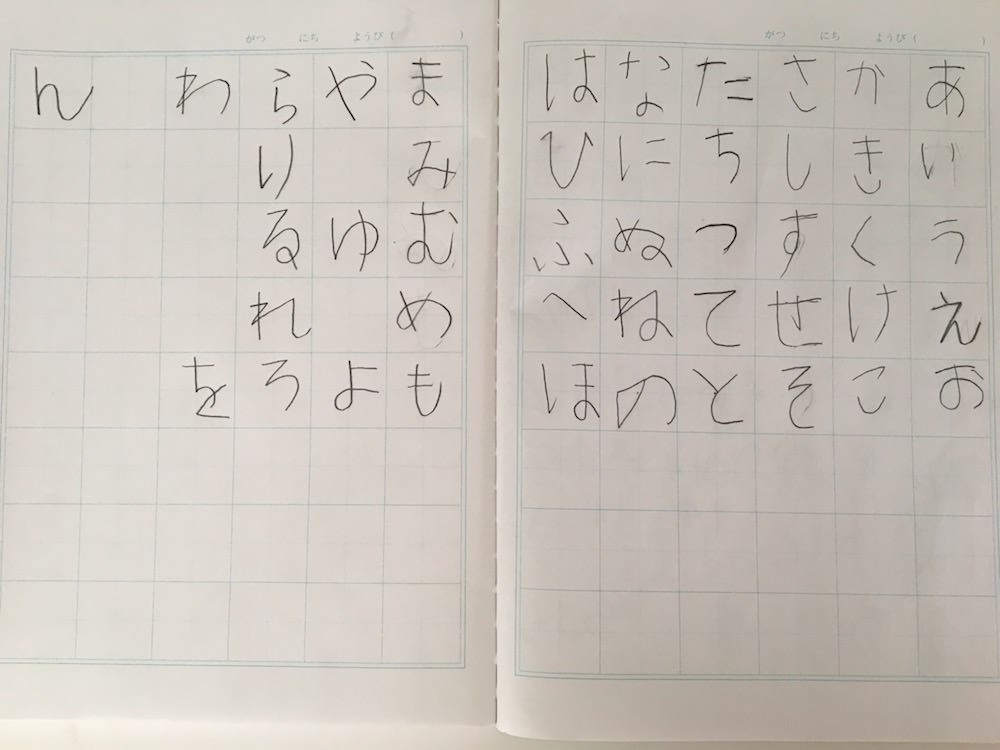 がつ にち ようび ( )
あいうえお
かきくけこ
さしすせそ
たちつてと
なにぬねの
はひふへほ
がつ にち ようび ( )
まみむめも
やゆよ
らりるれろ
わを
ん